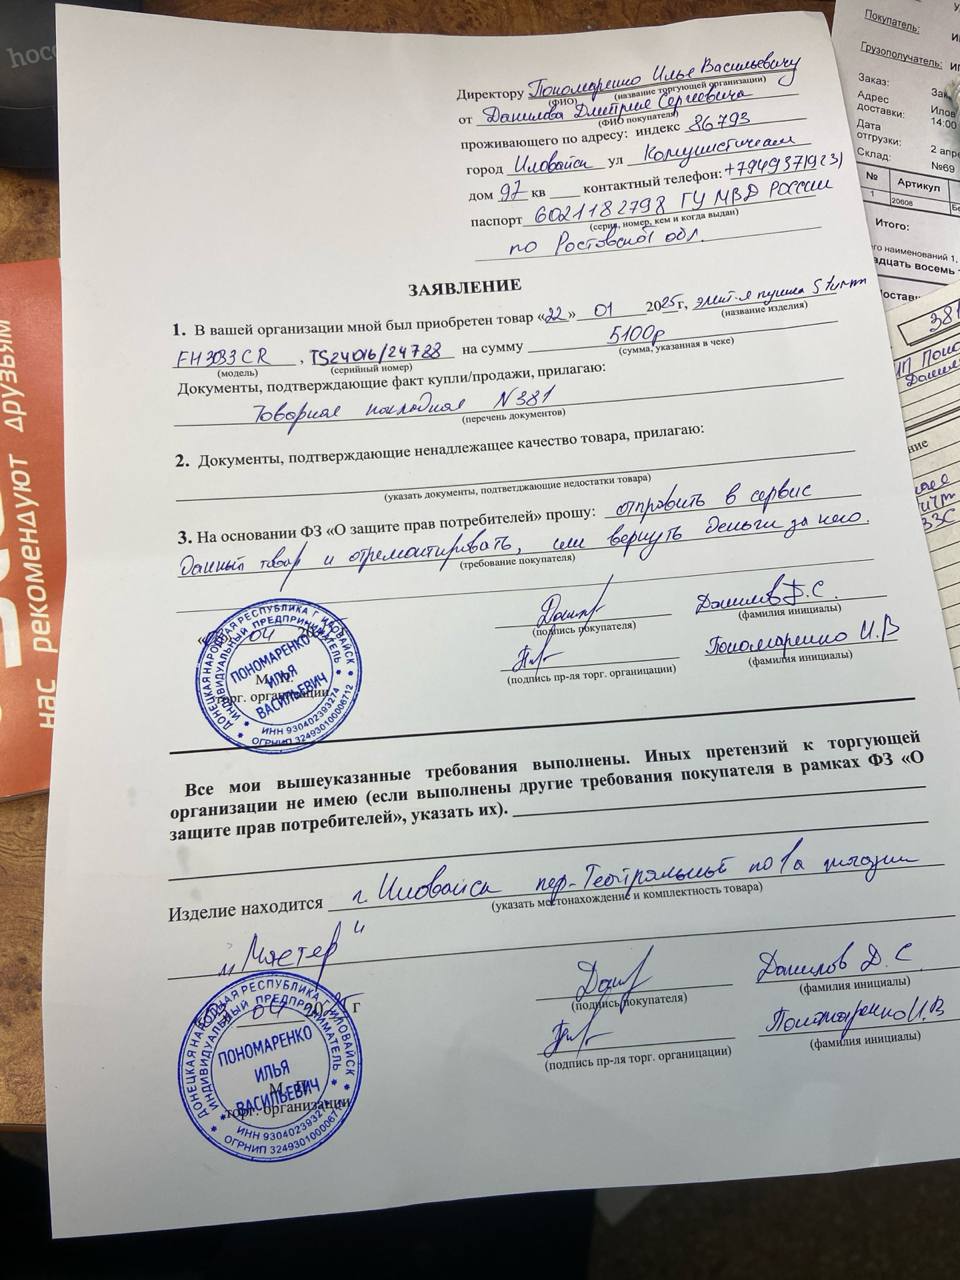 hoco
нас рекомендуют друзьям
Директору Пономаренко Илье Васильевичу
(ФИО) (название торгующей организации)
от Данилова Дмитрия Сергеевича
(ФИО покупателя)
проживающего по адресу: индекс 86793
город Иловайск ул
дом 97 кв контактный телефон: +79493719231
паспорт 6021182798 ГУ МВД РОССИИ
(серия, номер, кем и когда выдан)
по Ростовской обл.
ЗАЯВЛЕНИЕ
1. В вашей организации мной был приобретен товар «22» 01 2025г, пушка Sturm
(название изделия)
, на сумму 5100р
(модель) (серийный номер) (сумма, указанная в чеке)
Документы, подтверждающие факт купли/продажи, прилагаю:
Товарная накладная N381
(перечень документов)
2. Документы, подтверждающие ненадлежащее качество товара, прилагаю:
(указать документы, подтветджающие недостатки товара)
3. На основании ФЗ «О защите прав потребителей» прошу: отправить в сервис
Данный товар и отремонтировать, или вернуть деньги за него.
(требование покупателя)
04
Данилов Д.С.
(подпись рокупателя) (фамилия инициалы)
Пономаренко И.В
(подпись пр-ля торг. органицации) (фамилия инициалы)
торг. организации
ДОНЕЦКАЯ НАРОДНАЯ РЕСПУБЛИКА Г. ИЛОВАЙСК
ИНДИВИДУАЛЬНЫЙ ПРЕДПРИНИМАТЕЛЬ
ПОНОМАРЕНКО
ИЛЬЯ
ВАСИЛЬЕВИЧ
ИНН 930402393274
ОГРНИП 324930100006712
Все мои вышеуказанные требования выполнены. Иных претензий к торгующей
организации не имею (если выполнены другие требования покупателя в рамках ФЗ «О
защите прав потребителей», указать их).
Изделие находится г. Иловайск пер. Театральный магазин
(указать местонахождение и комплектность товара)
"Мастер"
04 2025 г
Данилов Д.С
(подпись покупателя) (фамилия инициалы)
Пономаренко И.В
(подпись пр-ля торг. органицации) (фамилия инициалы)
торг. организации
ДОНЕЦКАЯ НАРОДНАЯ РЕСПУБЛИКА Г. ИЛОВАЙСК
ИНДИВИДУАЛЬНЫЙ ПРЕДПРИНИМАТЕЛЬ
ПОНОМАРЕНКО
ИЛЬЯ
ВАСИЛЬЕВИЧ
ИНН 930402393274
ОГРНИП 324930100006712
Покупатель:
Грузополучатель:
Заказ:
Адрес доставки:
14:00
Дата отгрузки: 2 апре
Склад: №69
№ Артикул
1 20608
Итого:
381